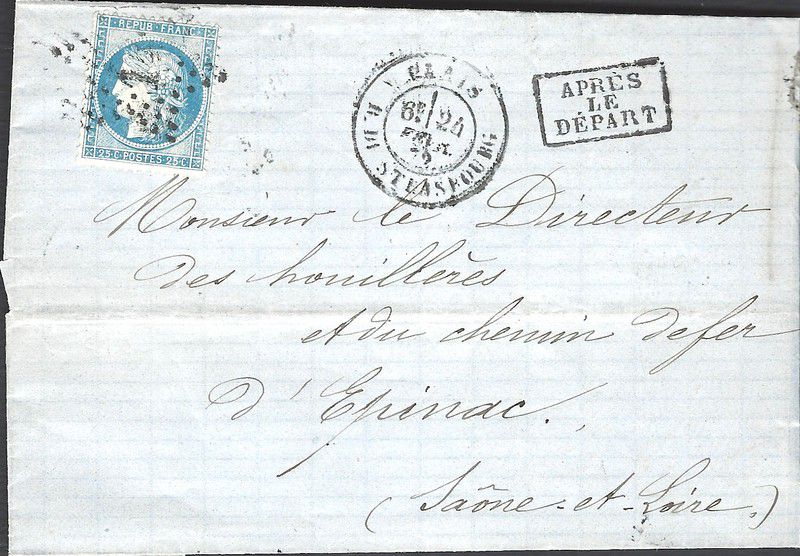 REPUB. FRANC.
25 C. POSTES 25 C.
PARIS
6E 24
FEVR.
72
R. DE STRASBOURG
APRÈS
LE
DÉPART
Monsieur le Directeur
des houillères
et du chemin de fer
d'Epinac.
(Saône-et-Loire.)